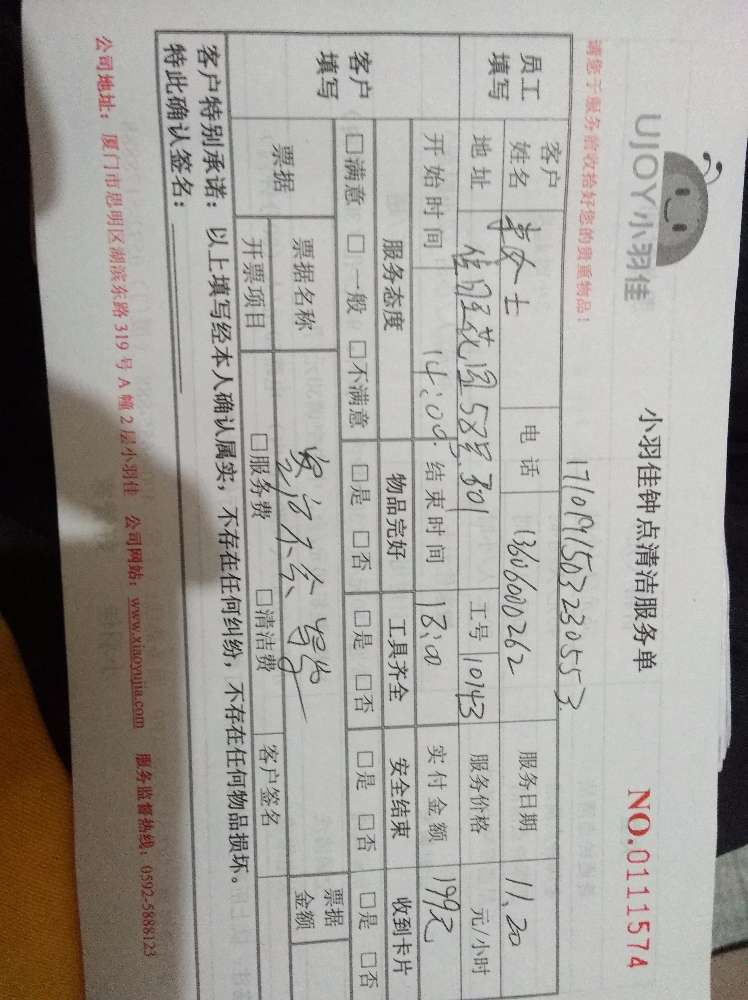 UJOY小羽佳
小羽佳钟点清洁服务单
NO.0111574
请您于服务前收拾好您的贵重物品！
171019150323 0553
员工填写
客户姓名 李女士 电话 13606000262 服务日期 11.20
地址 佳丽花园58号301 工号 10143 服务价格 元/小时
开始时间 14:00 结束时间 18:00 实付金额 199元
客户填写
服务态度 物品完好 工具齐全 安全结束 收到卡片
□满意 □一般 □不满意 □是 □否 □是 □否 □是 □否 □是 □否
票据 票据名称 票据金额
开票项目 □服务费 □清洁费 客户签名
客户特别承诺：以上填写经本人确认属实，不存在任何纠纷，不存在任何物品损坏。
特此确认签名：
公司地址：厦门市思明区湖滨东路319号A幢2层小羽佳 公司网站：www.xiaoyujia.com 服务监督热线：0592-5888123